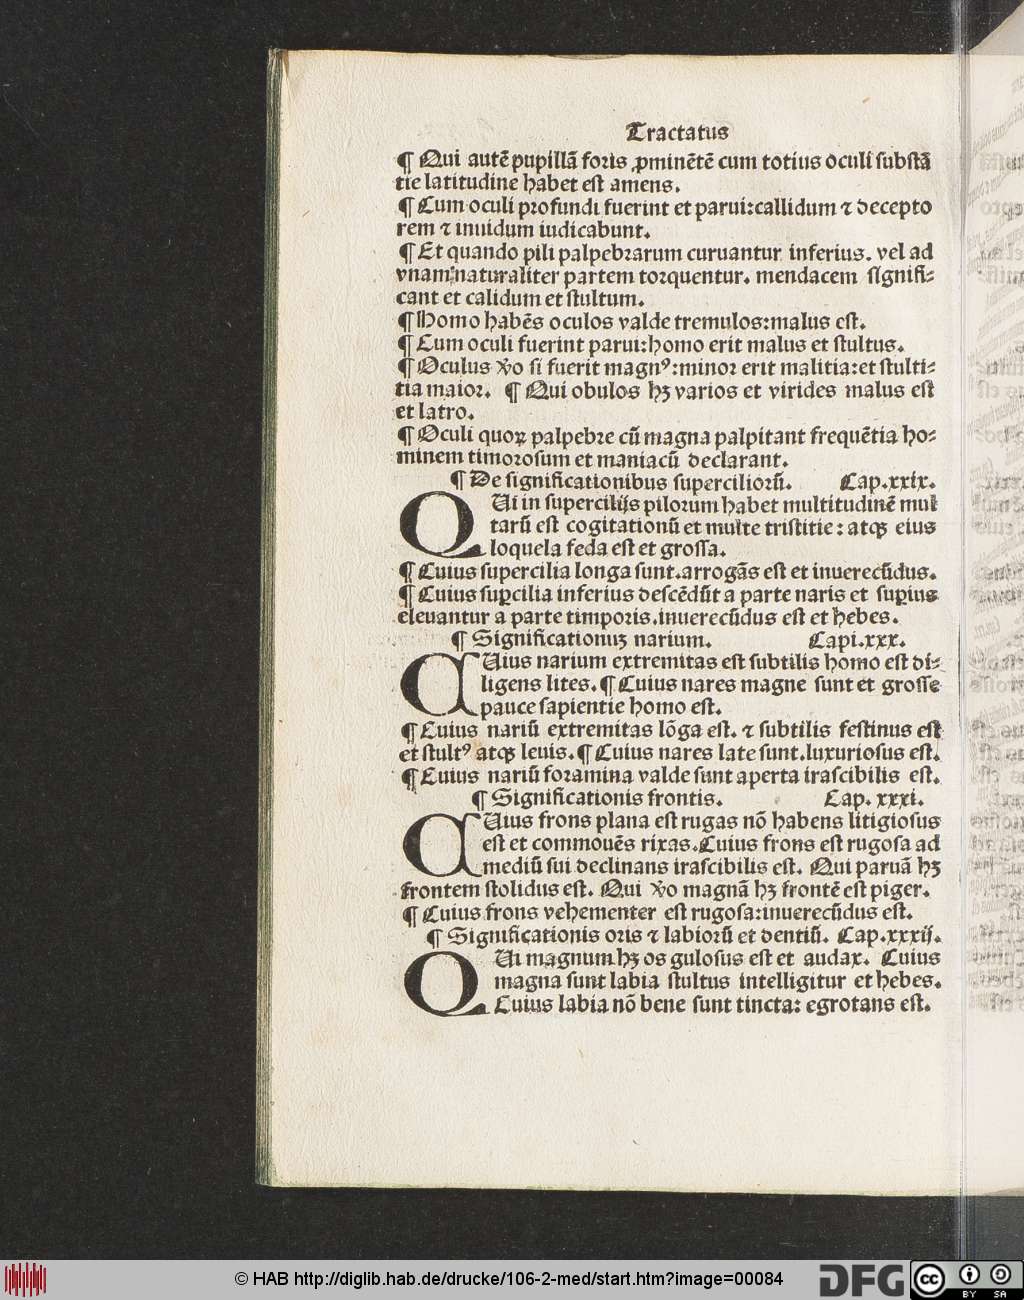 Tractatus
¶ Qui autē pupillā foris ꝓminētē cum totius oculi substā
tie latitudine habet est amens.
¶ Cum oculi profundi fuerint et parui:callidum ⁊ decepto
rem ⁊ inuidum iudicabunt.
¶ Et quando pili palpebrarum curuantur inferius. vel ad
vnam naturaliter partem torquentur. mendacem signifi-
cant et calidum et stultum.
¶ Homo habēs oculos valde tremulos:malus est.
¶ Cum oculi fuerint parui:homo erit malus et stultus.
¶ Oculus v̄o si fuerit magnꝰ:minor erit malitia:et stulti-
tia maior. ¶ Qui obulos hꝫ varios et virides malus est
et latro.
¶ Oculi quoꝝ palpebre cū magna palpitant frequētia ho-
minem timorosum et maniacū declarant.
¶ De significationibus superciliorū. Cap.xxix.
QUi in supercilijs pilorum habet multitudinē mul
tarū est cogitationū et multe tristitie: atqꝫ eius
loquela feda est et grossa.
¶ Cuius supercilia longa sunt.arrogās est et inuerecūdus.
¶ Cuius suꝑcilia inferius descēdūt a parte naris et suꝑius
eleuantur a parte timporis.inuerecūdus est et hebes.
¶ Significationuꝫ narium. Capi.xxx.
CUius narium extremitas est subtilis homo est di-
ligens lites. ¶ Cuius nares magne sunt et grosse
pauce sapientie homo est.
¶ Cuius nariū extremitas lōga est. ⁊ subtilis festinus est
et stultꝰ atqꝫ leuis. ¶ Cuius nares late sunt.luxuriosus est.
¶ Cuius nariū foramina valde sunt aperta irascibilis est.
¶ Significationis frontis. Cap. xxxi.
CUius frons plana est rugas nō habens litigiosus
est et commouēs rixas.Cuius frons est rugosa ad
mediū sui declinans irascibilis est. Qui paruā hꝫ
frontem stolidus est. Qui v̄o magnā hꝫ frontē est piger.
¶ Cuius frons vehementer est rugosa:inuerecūdus est.
¶ Significationis oris ⁊ labiorū et dentiū. Cap.xxxij.
QUi magnum hꝫ os gulosus est et audax. Cuius
magna sunt labia stultus intelligitur et hebes.
Cuius labia nō bene sunt tincta: egrotans est.
© HAB http://diglib.hab.de/drucke/106-2-med/start.htm?image=00084
DFG
cc BY SA